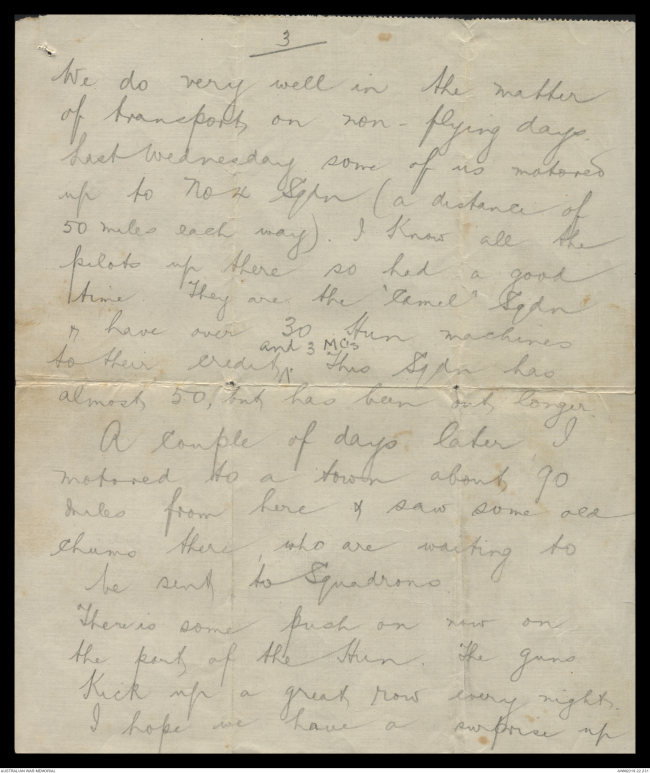 3
We do very well in the matter
of transport, on non-flying days.
Last Wednesday some of us motored
up to No 4 Sqdn (a distance of
50 miles each way). I know all the
pilots up there so had a good
time. They are the "Camel" Sqdn
& have over 30 Hun machines
and 3 MCs
to their credit. This Sqdn has
almost 50, but has been out longer.
A couple of days later I
motored to a town about 90
miles from here & saw some old
chums there, who are waiting to
be sent to Squadrons
There is some push on now on
the part of the Hun. The guns
kick up a great row every night.
I hope we have a surprise up
AUSTRALIAN WAR MEMORIAL